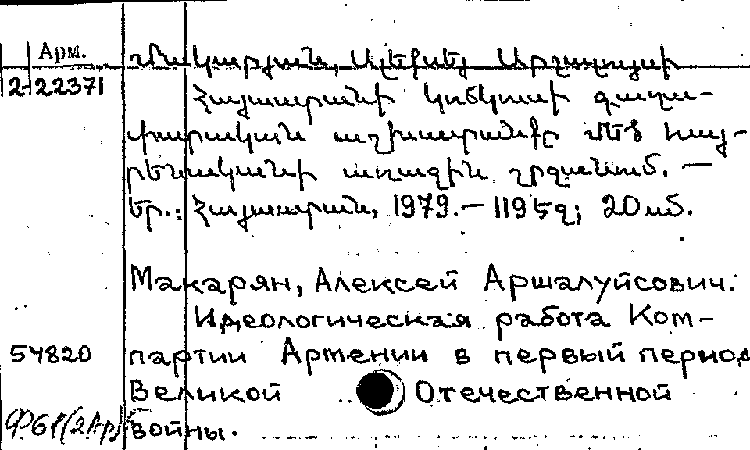 Арм.
Մակարյան, Ալեքսեյ Արշալույսի
2-22371
Հայաստանի կոմկուսի գաղա-
փարական աշխատանքը Մեծ հայ-
րենականի առաջին շրջանում. —
Եր.: Հայաստան, 1979. — 119 էջ; 20 սմ.
Макарян, Алексей Аршалуйсович.
Идеологическая работа Ком-
54820 партии Армении в первый период
Великой Отечественной
Ф61(2Ар) войны.